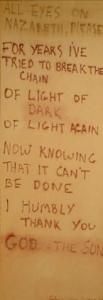 ALL EYES ON
NAZARETH, PLEASE
FOR YEARS I'VE
TRIED TO BREAK THE
CHAIN
OF LIGHT OF
DARK
OF LIGHT AGAIN
NOW KNOWING
THAT IT CAN'T
BE DONE
I HUMBLY
THANK YOU
GOD - THE SON